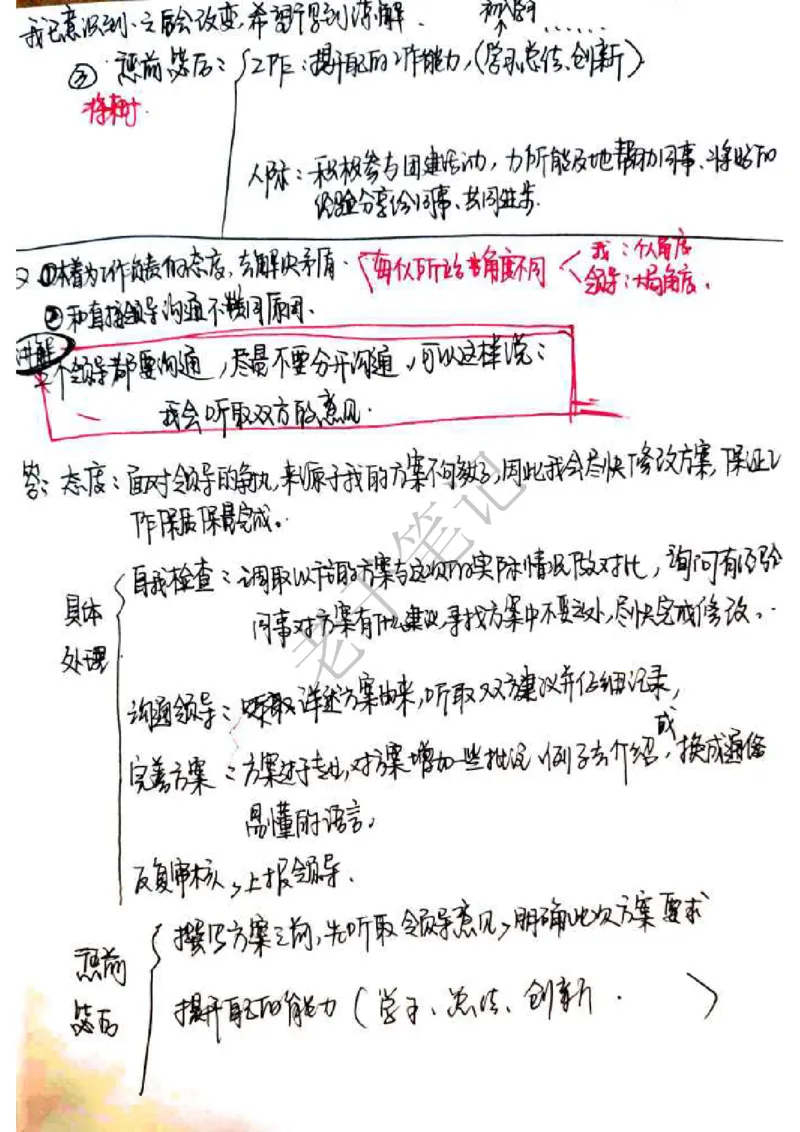 我已意识到,之后会改变,希望得到谅解.
......
③ 惩前毖后: 工作:提升自己的工作能力,(学习、总结、创新)
将来时
人际:积极参与团建活动,力所能及地帮助同事、将好的
经验分享给同事、共同进步.
①本着为工作负责的态度,去解决矛盾. 每人所站的角度不同 我:个人角度
领导:大局角度.
②和直接领导沟通不赞同原因.
讲解
个领导都要沟通,尽量不要分开沟通,可以这样说:
我会听取双方的意见.
答:态度:面对领导的争执,来源于我的方案不够数,因此我会尽快修改方案,保证工
作保质保量完成。
具体处理
自我检查:调取以前的方案与这次的实际情况做对比,询问有经验
同事对方案有什么建议,寻找方案中不妥之处,尽快完成修改。
沟通领导:详述方案由来,听取双方建议并仔细记录,
完善方案:方案过于专业,对方案增加一些批况、例子去介绍,或换成通俗
易懂的语言。
反复审核,上报领导.
惩前毖后
撰写方案之前,先听取领导意见,明确此次方案要求
提升自己的能力(学习、总结、创新. )
老千笔记